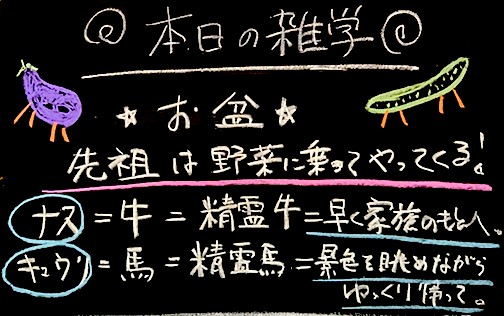 本日の雑学
☆お盆☆
先祖は野菜に乗ってやってくる!。
ナス=牛=精霊牛=早く家族のもとへ。
キュウリ=馬=精霊馬=景色を眺めながら
ゆっくり帰って。